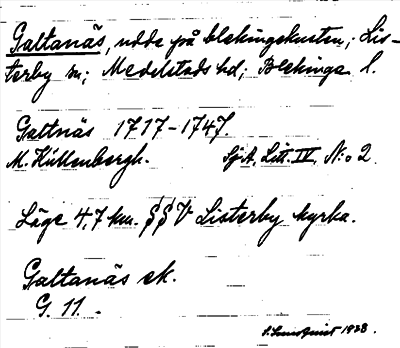 Galtanäs, udde på blekingekusten; Lis-
terby sn; Medelstads hd; Blekinge l.
Galtnäs 1717-1747.
M. Küllenbergh. SjA, Litt. IV, N:o 2
Läge 4,7 km. SSV Listerby kyrka.
Galtanäs ek.
G. 11.
S. Lundquist 1928.